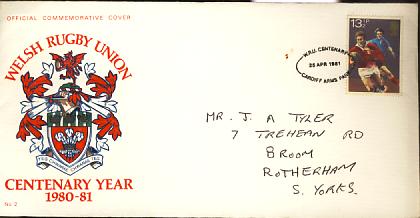 OFFICIAL COMMEMORATIVE COVER
WELSH RUGBY UNION
CENTENARY YEAR
1980-81
No 2
13½P
W.R.U. CENTENARY
25 APR 1981
CARDIFF ARMS PARK
MR. J A TYLER
7 TREHEAN RD
BROOM
ROTHERHAM
S. YORKS.